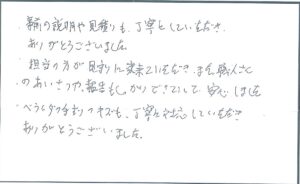 事前の説明や見積りも、丁寧にしていただき、
ありがとうございました。
担当の方が見回りに来ていただき、また職人さん
のあいさつや、報告もしっかりできていて安心しました
ベランダの手すりのキズも、丁寧に対応していただき
ありがとうございました。